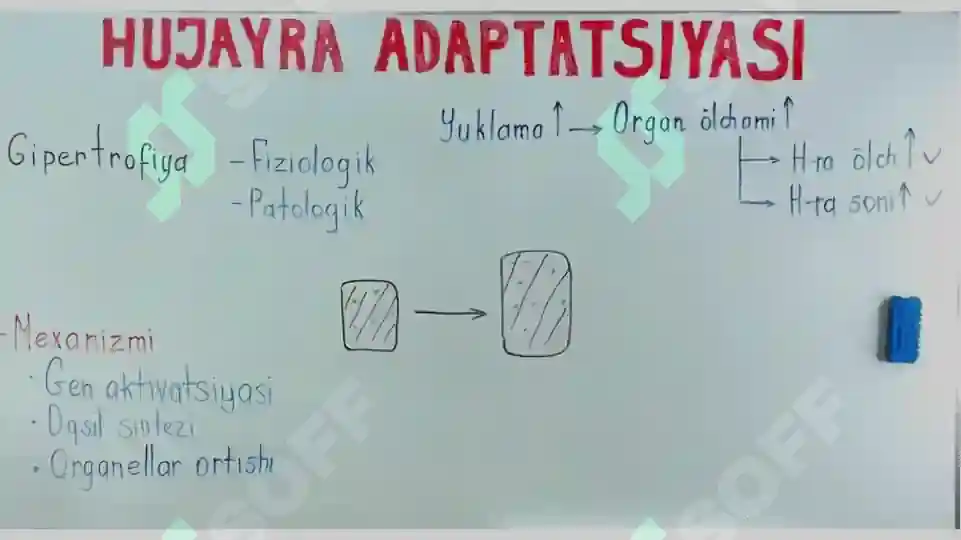 HUJAYRA ADAPTATSIYASI
Yuklama ↑ → Organ ölchami ↑
Gipertrofiya - Fiziologik
- Patologik
→ H-ra ölch ↑ ✓
→ H-ra soni ↑ ✓
- Mexanizmi
· Gen aktivatsiyasi
· Oqsil sintezi
· Organellar ortishi
SOFF
SOFF